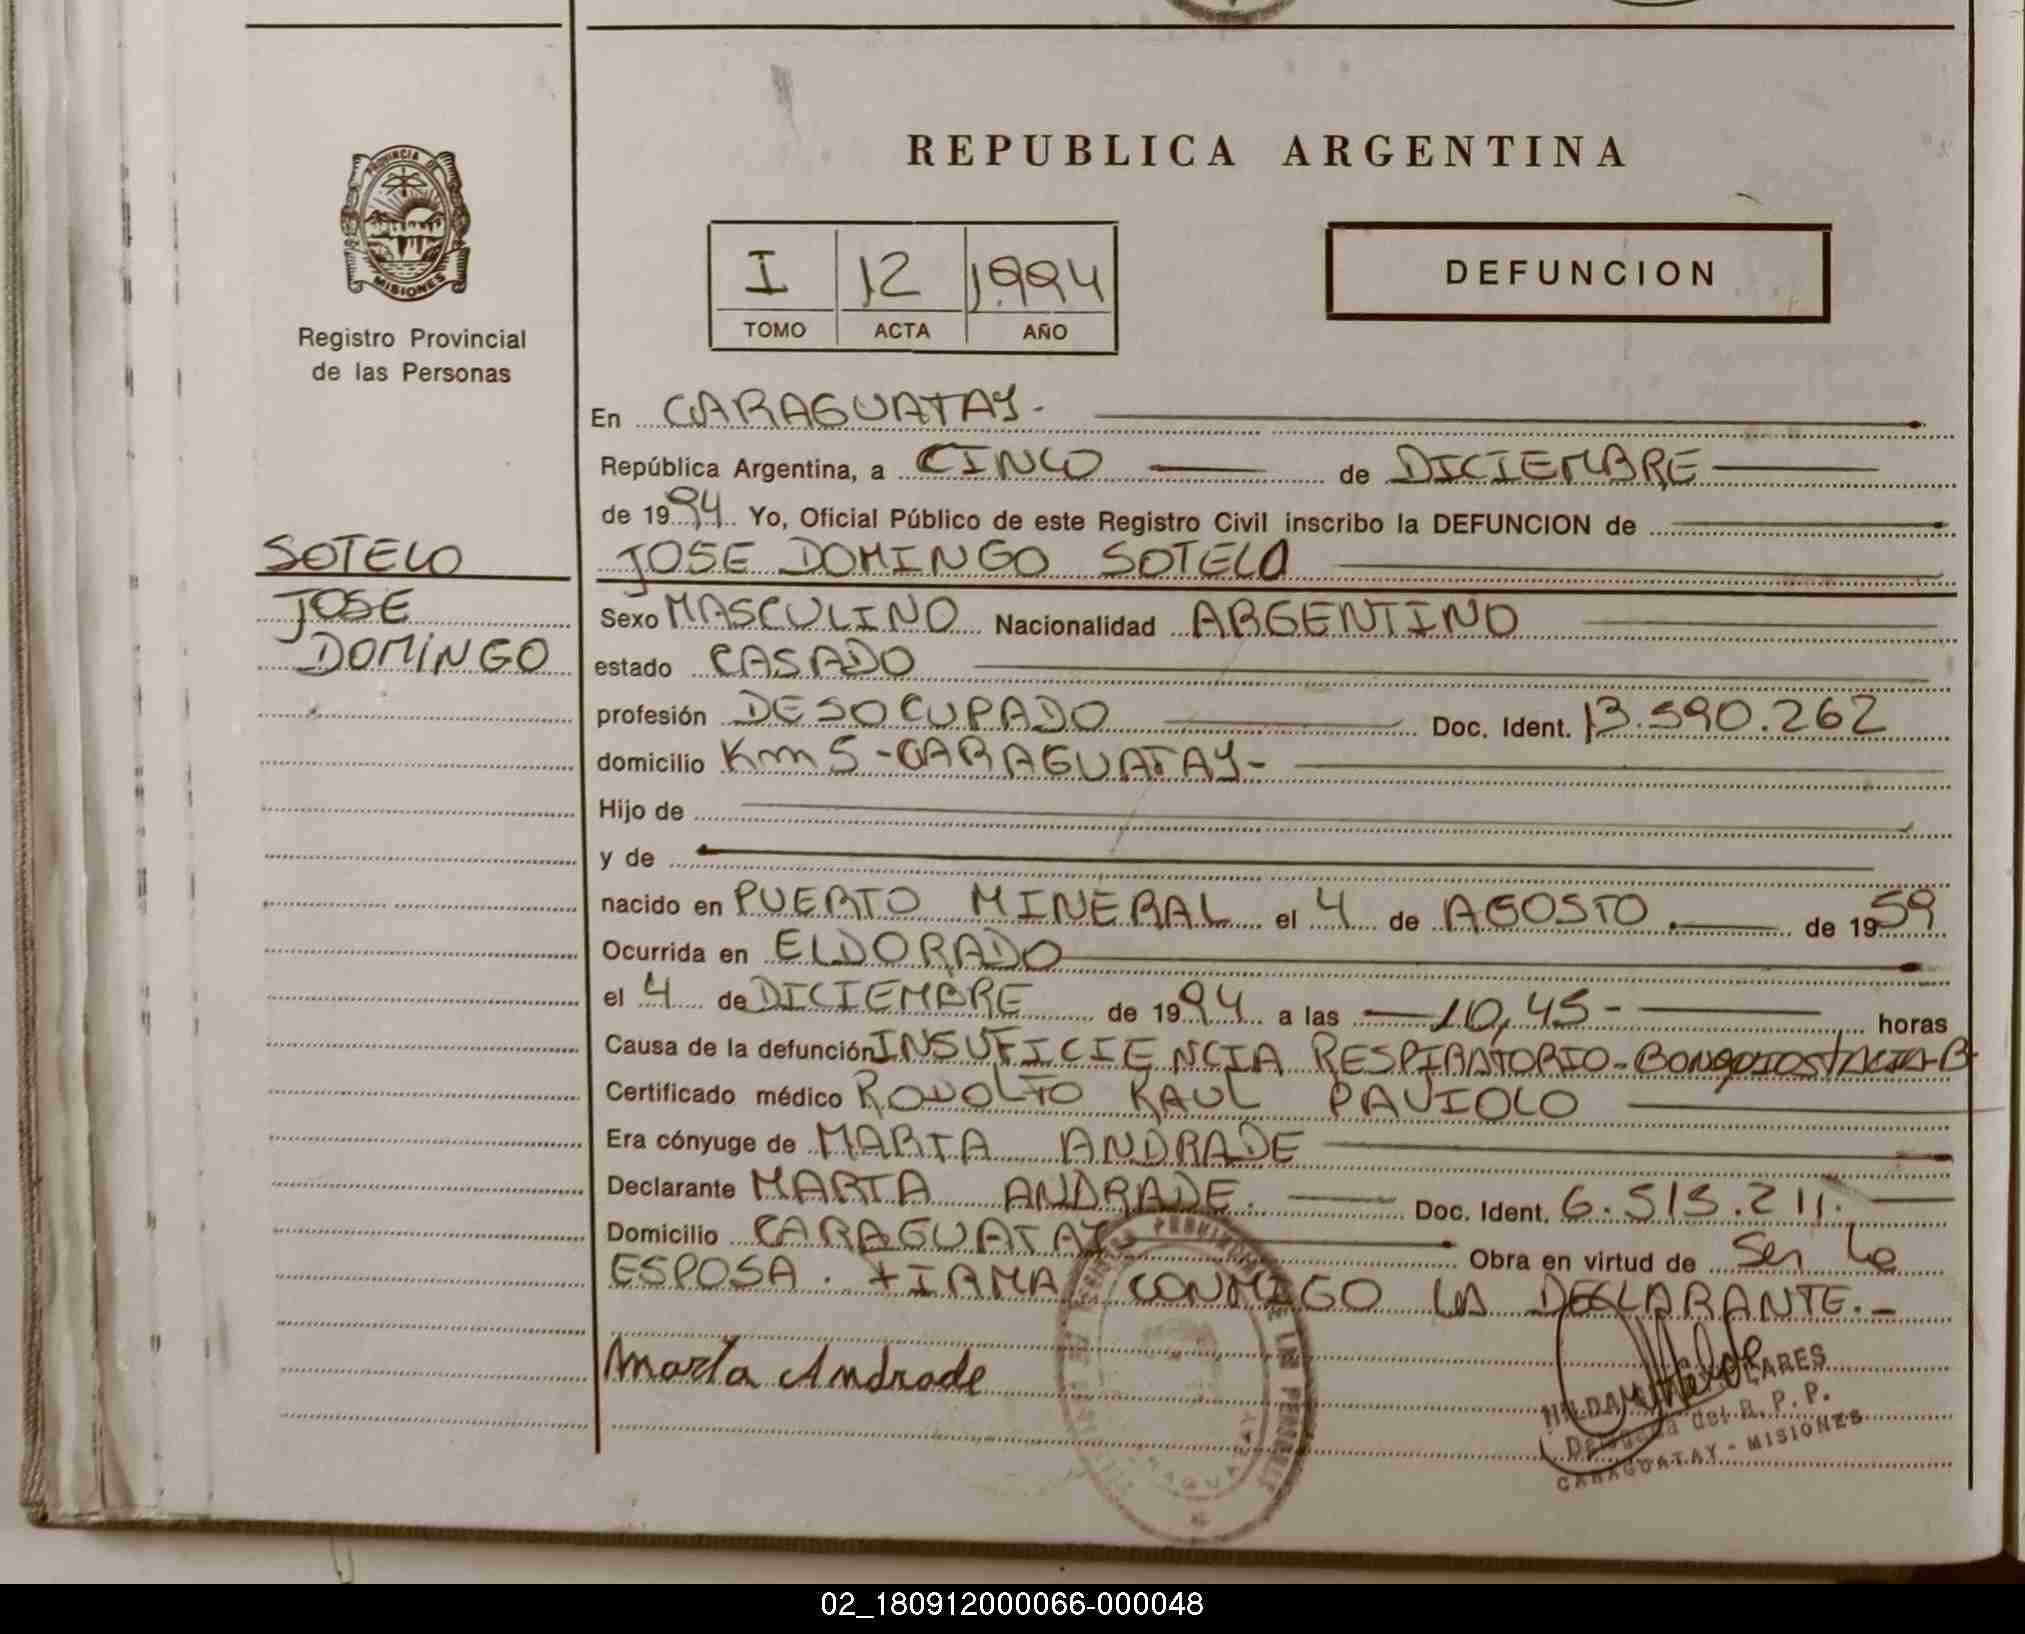 REPUBLICA ARGENTINA
PROVINCIA DE
MISIONES
Registro Provincial
de las Personas
I 12 1994
TOMO ACTA AÑO
DEFUNCION
En CARAGUATAY-
República Argentina, a CINCO de DICIEMBRE
de 1994 Yo, Oficial Público de este Registro Civil inscribo la DEFUNCION de
SOTELO
JOSE DOMINGO SOTELO
JOSE
DOMINGO
Sexo MASCULINO Nacionalidad ARGENTINO
estado CASADO
profesión DESOCUPADO Doc. Ident. 13.590.262
domicilio Km 5-CARAGUATAY-
Hijo de
y de
nacido en PUERTO MINERAL el 4 de AGOSTO de 1959
Ocurrida en ELDORADO
el 4 de DICIEMBRE de 1994 a las 10,45- horas
Causa de la defunción INSUFICIENCIA RESPIRATORIO-
Certificado médico RODOLFO RAUL PAVIOLO
Era cónyuge de MARTA ANDRADE
Declarante MARTA ANDRADE. Doc. Ident. 6.515.211.
Domicilio CARAGUATAY Obra en virtud de Ser la
ESPOSA. FIRMA CONMIGO LA DECLARANTE.-
Marta Andrade
del R. P. P.
CARAGUATAY - MISIONES
02_180912000066-000048